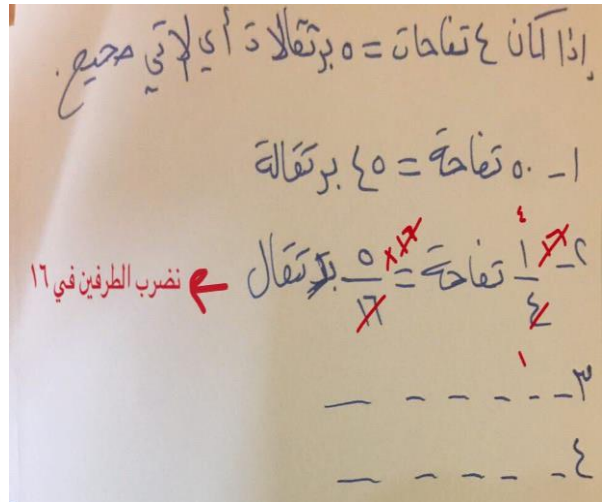 إذا كان ٤ تفاحات = ٥ برتقالات أي لآتي صحيح.
١- ٥٠ تفاحة = ٤٥ برتقالة
٢- ١٦ ١/٤ تفاحة = ٥/١٦ ×١٦ برتقال ← نضرب الطرفين في ١٦
٤
١
٣- – – – – –
٤- – – – –